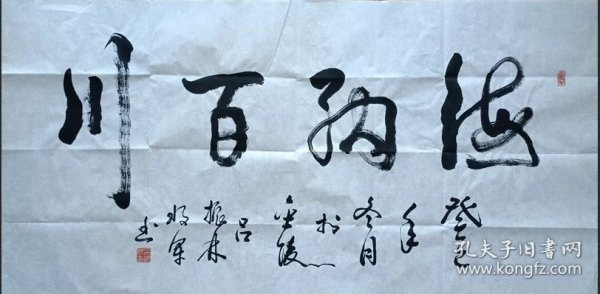 海纳百川
癸巳
年
冬月
于
金陵
吕
振林
将军
书
孔夫子旧书网
www.kongfz.com